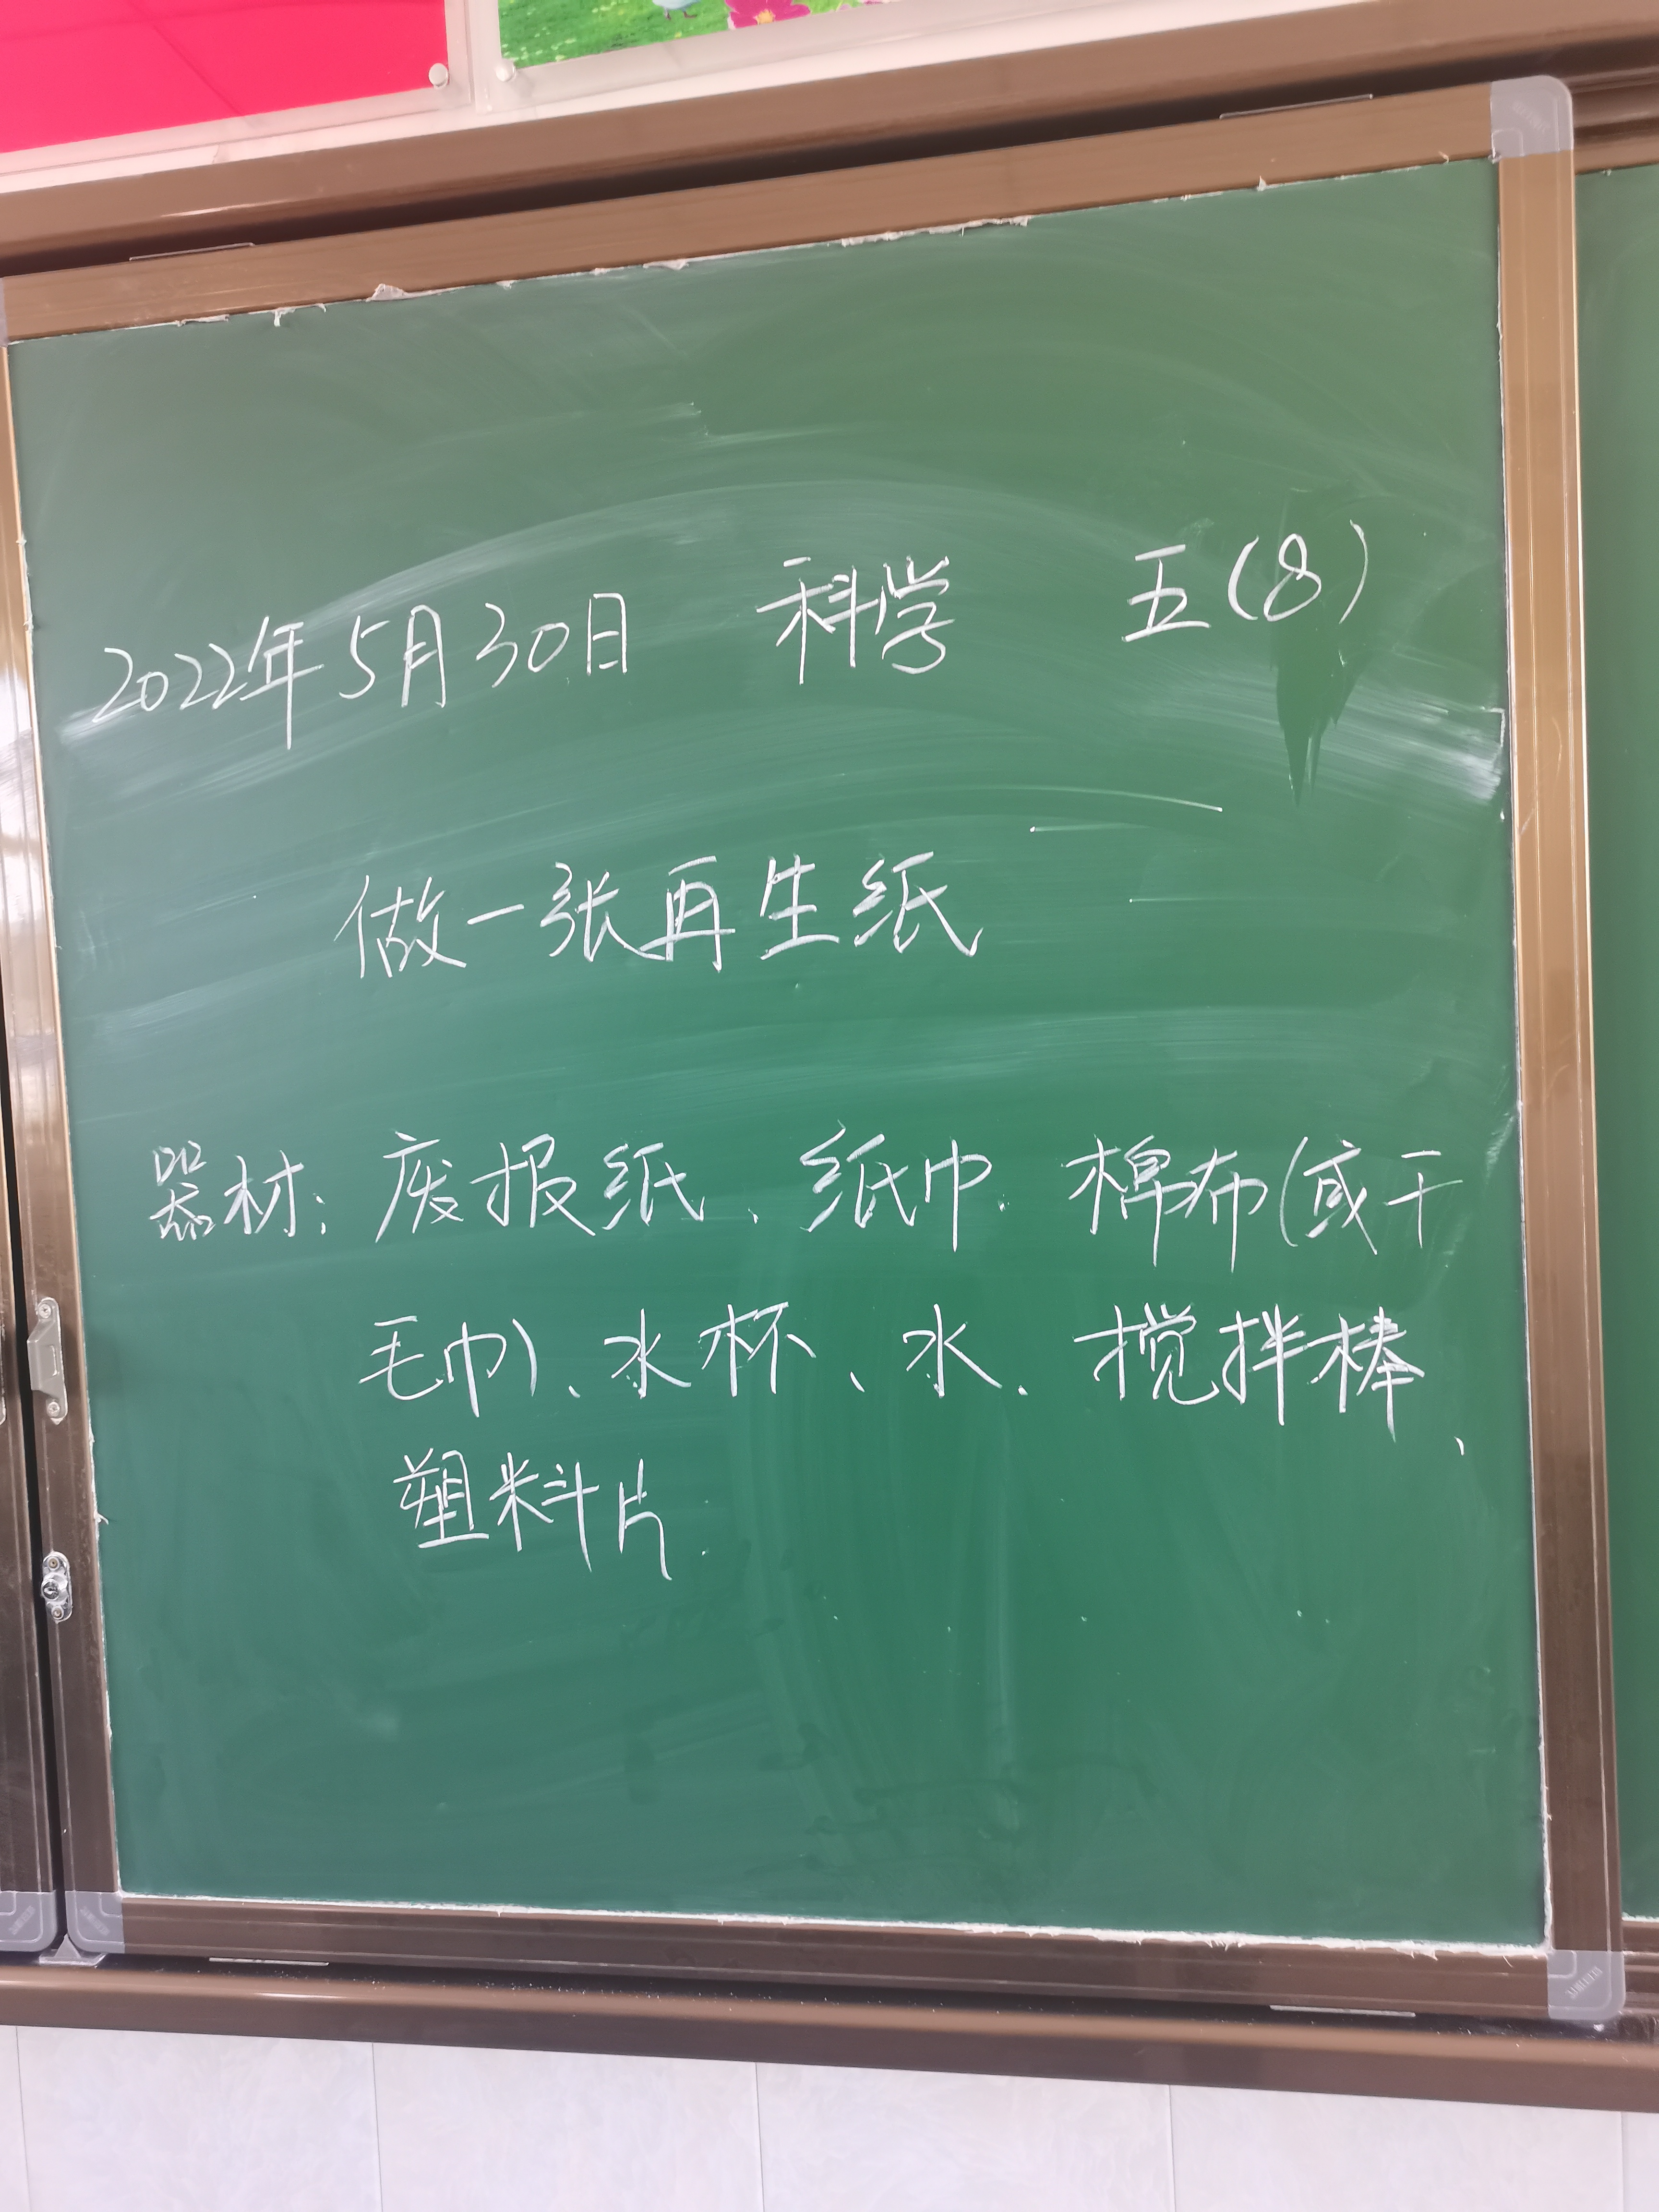 2022年5月30日 科学 五(8)
做一张再生纸
器材：废报纸、纸巾、棉布(或干
毛巾)、水杯、水、搅拌棒、
塑料片.